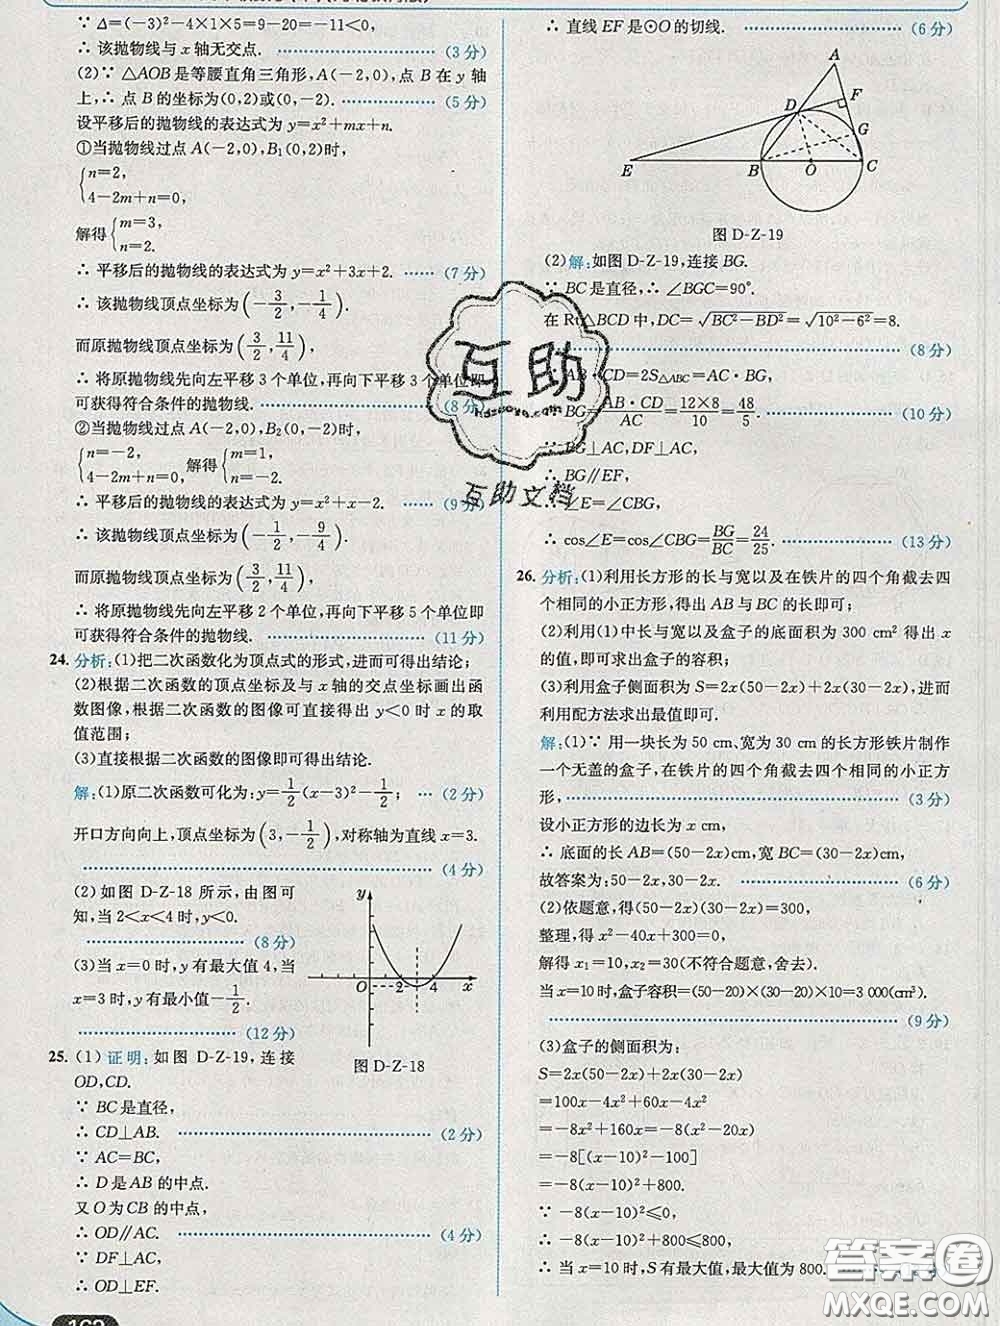 ∵ Δ=(-3)²-4×1×5=9-20=-11<0,
∴ 该抛物线与 x 轴无交点. (3 分)
(2)∵ △AOB是等腰直角三角形,A(-2,0),点 B 在 y 轴
上,∴ 点 B 的坐标为(0,2)或(0,-2). (5 分)
设平移后的抛物线的表达式为 y=x²+mx+n.
①当抛物线过点 A(-2,0),B₁(0,2)时,
{n=2,
4-2m+n=0,
解得{m=3,
n=2.
∴ 平移后的抛物线的表达式为 y=x²+3x+2. (7 分)
∴ 该抛物线顶点坐标为(-3/2,-1/4).
而原抛物线顶点坐标为(3/2,11/4),
∴ 将原抛物线先向左平移 3 个单位,再向下平移 3 个单位即
可获得符合条件的抛物线. (8 分)
②当抛物线过点 A(-2,0),B₂(0,-2)时,
{n=-2,
4-2m+n=0, 解得{m=1,
n=-2.
∴ 平移后的抛物线的表达式为 y=x²+x-2. (9 分)
∴ 该抛物线顶点坐标为(-1/2,-9/4).
而原抛物线顶点坐标为(3/2,11/4),
∴ 将原抛物线先向左平移 2 个单位,再向下平移 5 个单位即
可获得符合条件的抛物线. (11 分)
24. 分析:(1)把二次函数化为顶点式的形式,进而可得出结论;
(2)根据二次函数的顶点坐标及与 x 轴的交点坐标画出函
数图像,根据二次函数的图像可直接得出 y<0 时 x 的取
值范围;
(3)直接根据二次函数的图像即可得出结论.
解:(1)原二次函数可化为:y=1/2(x-3)²-1/2; (2 分)
开口方向向上,顶点坐标为(3,-1/2),对称轴为直线 x=3.
(4 分)
(2)如图 D-Z-18 所示,由图可
知,当 2<x<4 时,y<0.
(8 分)
(3)当 x=0 时,y 有最大值 4,当
x=3 时,y 有最小值-1/2.
(12 分)
y
O 2 4 x
图 D-Z-18
25. (1)证明:如图 D-Z-19,连接
OD,CD.
∵ BC是直径,
∴ CD⊥AB. (2 分)
∵ AC=BC,
∴ D是AB的中点.
又 O为CB的中点,
∴ OD∥AC. (4 分)
∵ DF⊥AC,
∴ OD⊥EF.
∴ 直线 EF 是⊙O的切线. (6 分)
A
D F
G
E B O C
图 D-Z-19
(2)解:如图 D-Z-19,连接 BG.
∵ BC是直径,∴ ∠BGC=90°.
在 Rt△BCD中,DC=√(BC²-BD²)=√(10²-6²)=8.
(8 分)
CD=2S△ABC=AC·BG,
BG=AB·CD/AC=12×8/10=48/5. (10 分)
∵ BG⊥AC,DF⊥AC,
∴ BG∥EF,
∴ ∠E=∠CBG,
∴ cos∠E=cos∠CBG=BG/BC=24/25. (13 分)
26. 分析:(1)利用长方形的长与宽以及在铁片的四个角截去四
个相同的小正方形,得出 AB 与 BC 的长即可;
(2)利用(1)中长与宽以及盒子的底面积为 300 cm² 得出 x
的值,即可求出盒子的容积;
(3)利用盒子侧面积为 S=2x(50-2x)+2x(30-2x),进而
利用配方法求出最值即可.
解:(1)∵ 用一块长为 50 cm、宽为 30 cm 的长方形铁片制作
一个无盖的盒子,在铁片的四个角截去四个相同的小正方
形, (3 分)
设小正方形的边长为 x cm,
∴ 底面的长 AB=(50-2x)cm,宽 BC=(30-2x)cm.
故答案为:50-2x,30-2x. (6 分)
(2)依题意,得(50-2x)(30-2x)=300,
整理,得 x²-40x+300=0,
解得 x₁=10,x₂=30(不符合题意,舍去).
当 x=10时,盒子容积=(50-20)×(30-20)×10=3 000(cm³).
(9 分)
(3)盒子的侧面积为:
S=2x(50-2x)+2x(30-2x)
=100x-4x²+60x-4x²
=-8x²+160x=-8(x²-20x)
=-8[(x-10)²-100]
=-8(x-10)²+800.
∵ -8(x-10)²≤0,
∴ -8(x-10)²+800≤800,
∴ 当 x=10 时,S 有最大值,最大值为 800.
互助
hdzoozo.com
互助文档
答案圈
MXQE.COM